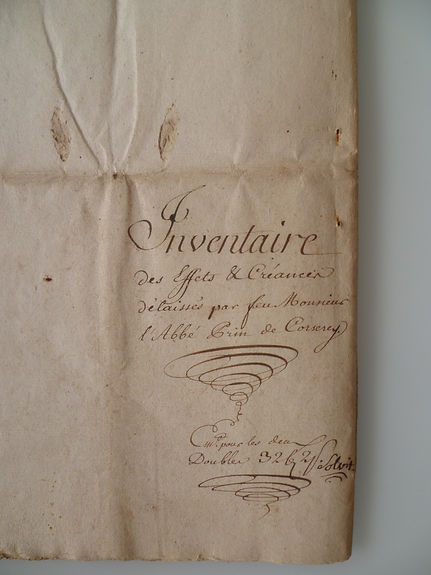 Inventaire
des Effets & Créances
délaissés par feu Monsieur
l'Abbé Prin de Corserey
pour les deux
Doubles 32 Solvit